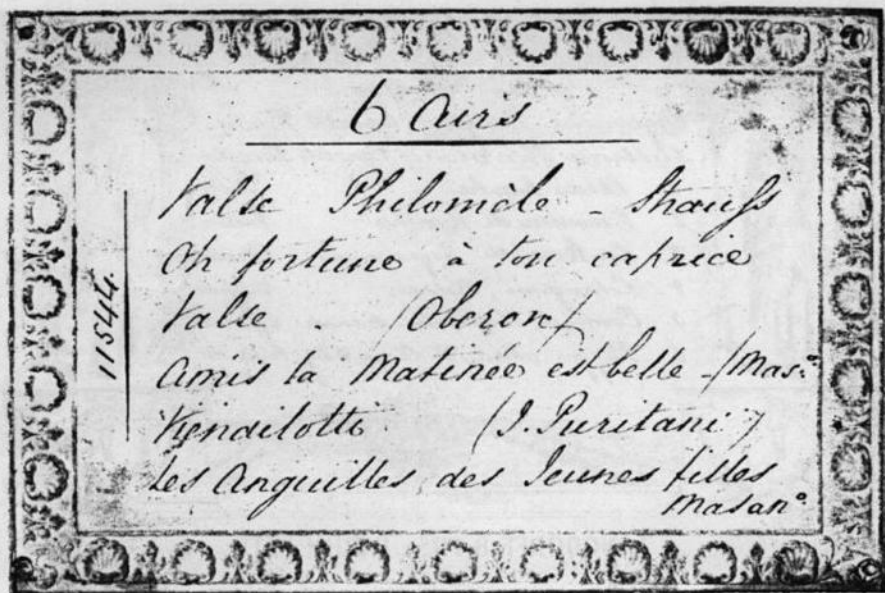 6 Airs
Valse Philomèle - Strauss
Oh fortune à ton caprice
Valse . (Oberon)
Amis la Matinée est belle - (Mas:º
(I. Puritani)
Les Anguilles des Jeunes filles
Masanº
11544.